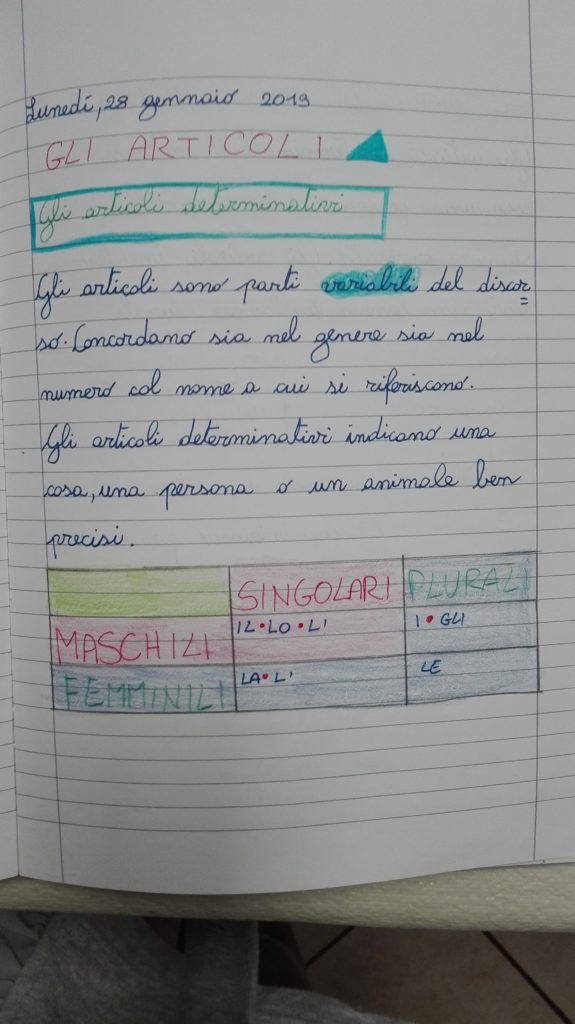 Lunedí, 28 gennaio 2019
GLI ARTICOLI
Gli articoli determinativi
Gli articoli sono parti variabili del discor
so. Concordano sia nel genere sia nel
numero col nome a cui si riferiscono.
Gli articoli determinativi indicano una
cosa, una persona o un animale ben
precisi.
SINGOLARI PLURALI
MASCHILI IL • LO • L' I • GLI
FEMMINILI LA • L' LE